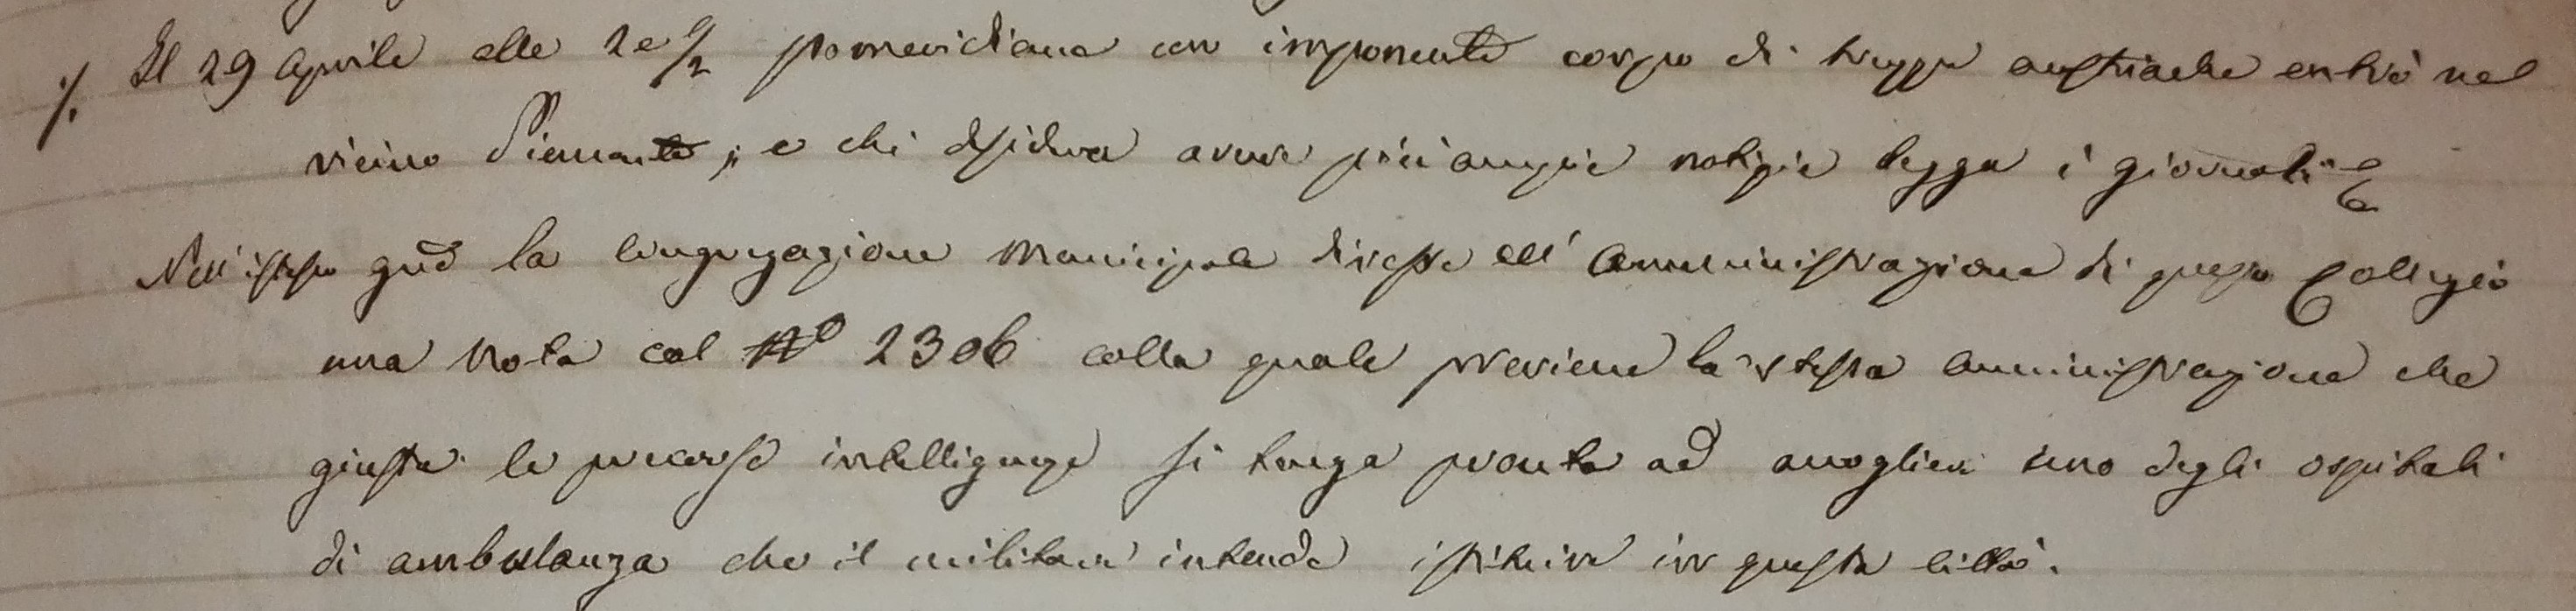 ·/. Il 29 Aprile alle 2 e 1/2 pomeridiane un imponente corpo di truppe austriache entrò nel
vicino Piemonte; e chi desidera avere più ampie notizie legga i giornali =
Nell'istesso gno la Congregazione Municipale diresse all'Amministrazione di questo Collegio
una Nota col No 2306 colla quale previene la stessa Amministrazione che
giusta le precorse intelligenze si tenga pronta ad accogliere uno degli ospitali
di ambulanza che il militare intende istituire in questa Città.